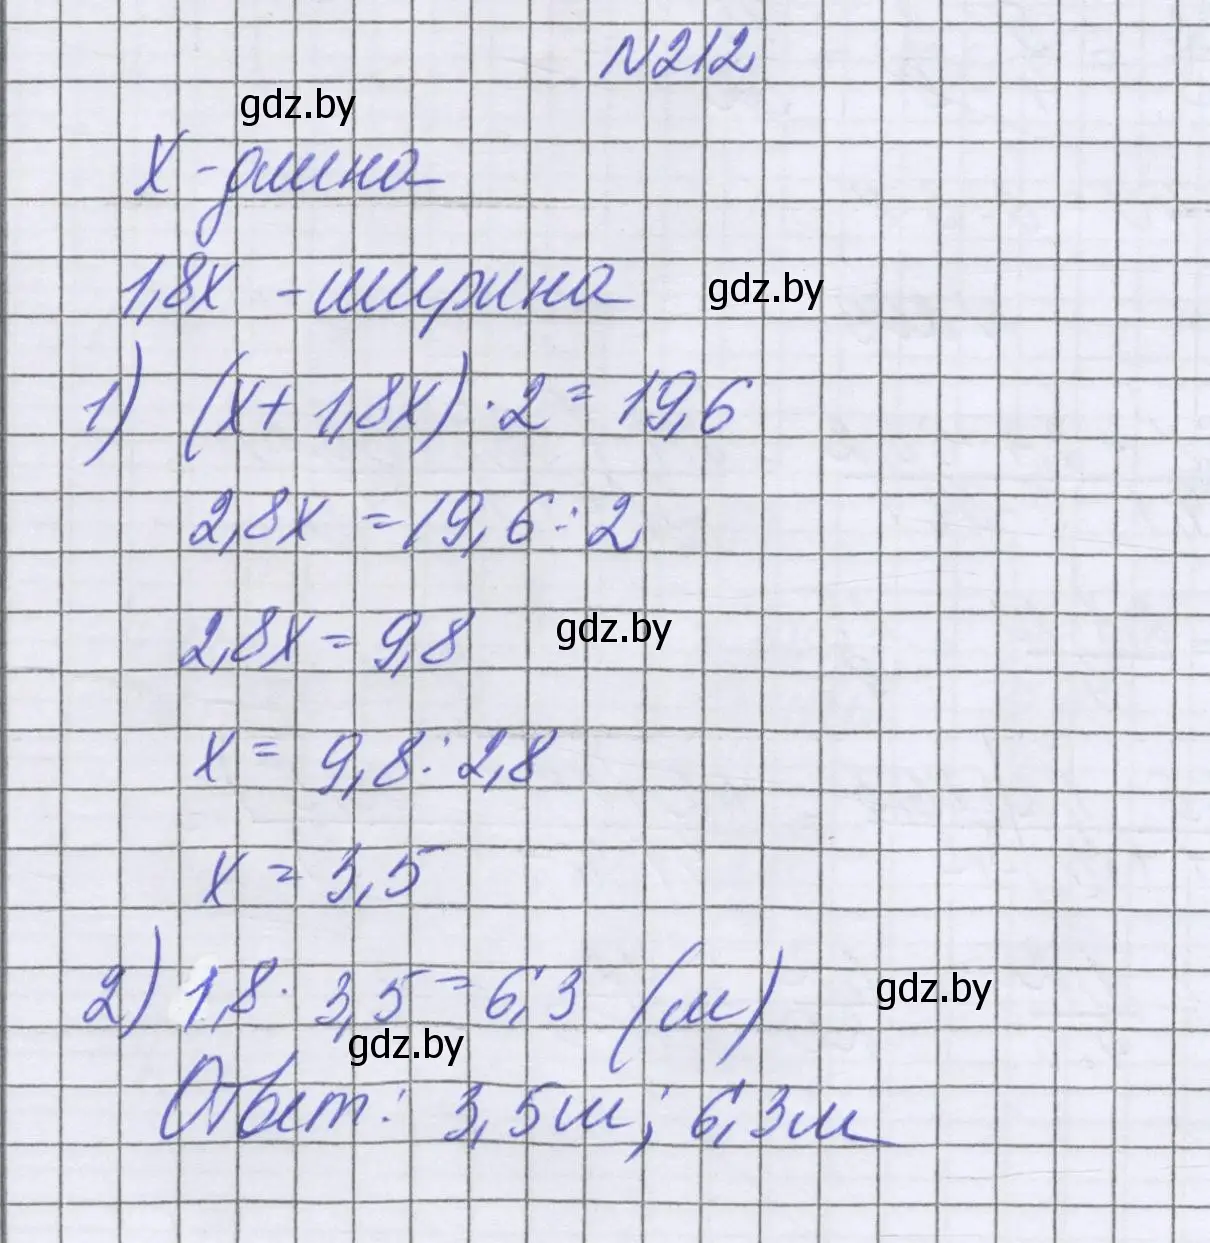 N212
gdz.by
x - длина
1,8x - ширина
gdz.by
1) (x + 1,8x) · 2 = 19,6
2,8x = 19,6 : 2
2,8x = 9,8
gdz.by
x = 9,8 : 2,8
x = 3,5
2) 1,8 · 3,5 = 6,3 (м)
gdz.by
gdz.by
Ответ: 3,5м; 6,3м